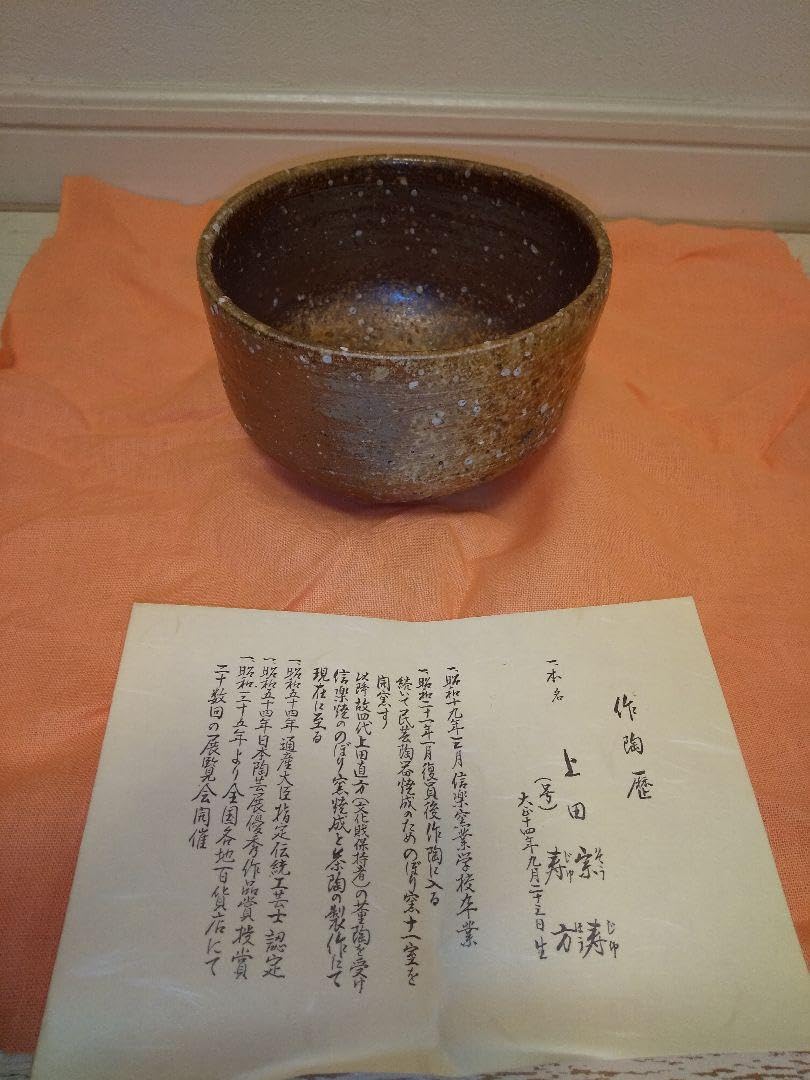 作陶歴
一、本名 上田宗寿
そうじゆ
(号) 寿方
じゆほう
大正十四年九月二十三日生
一、昭和十九年三月信楽窯業学校卒業
一、昭和二十一年一月復員後作陶に入る
続いて民芸陶器焼成のためのぼり窯十一室を
開窯す
以降故四代上田直方(文化財保持者)の薫陶を受け
信楽焼ののぼり窯焼成と茶陶の製作にて
現在に至る
一、昭和五十四年通産大臣指定伝統工芸士認定
一、昭和五十四年日本陶芸展優秀作品賞授賞
一、昭和三十五年より全国各地百貨店にて
二十数回の展覧会開催